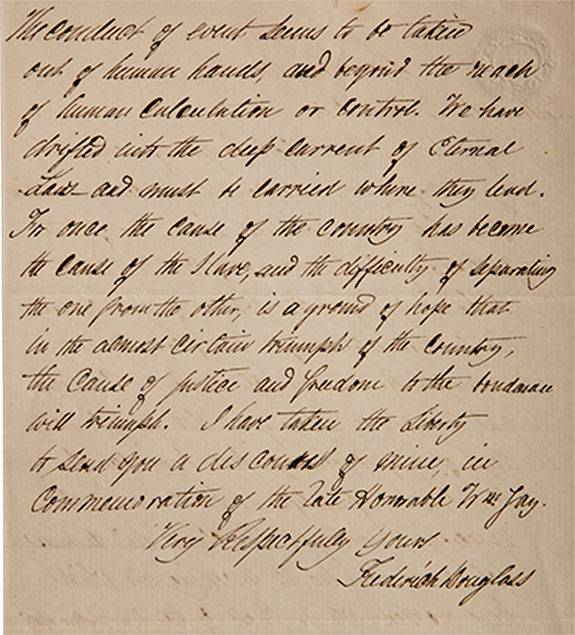 The conduct of event seems to be taken
out of human hands, and beyond the reach
of human calculation or control. We have
drifted into the deep current of Eternal
Laws and must be carried where they lead.
For once the cause of the country has become
the cause of the Slave, and the difficulty of separating
the one from the other, is a ground of hope that
in the almost certain triumph of the country,
the cause of justice and freedom to the bondman
will triumph. I have taken the Liberty
to send you a discourse of mine, in
Commemoration of the late Honorable Wm Jay.
Very Respectfully yours
Frederick Douglass